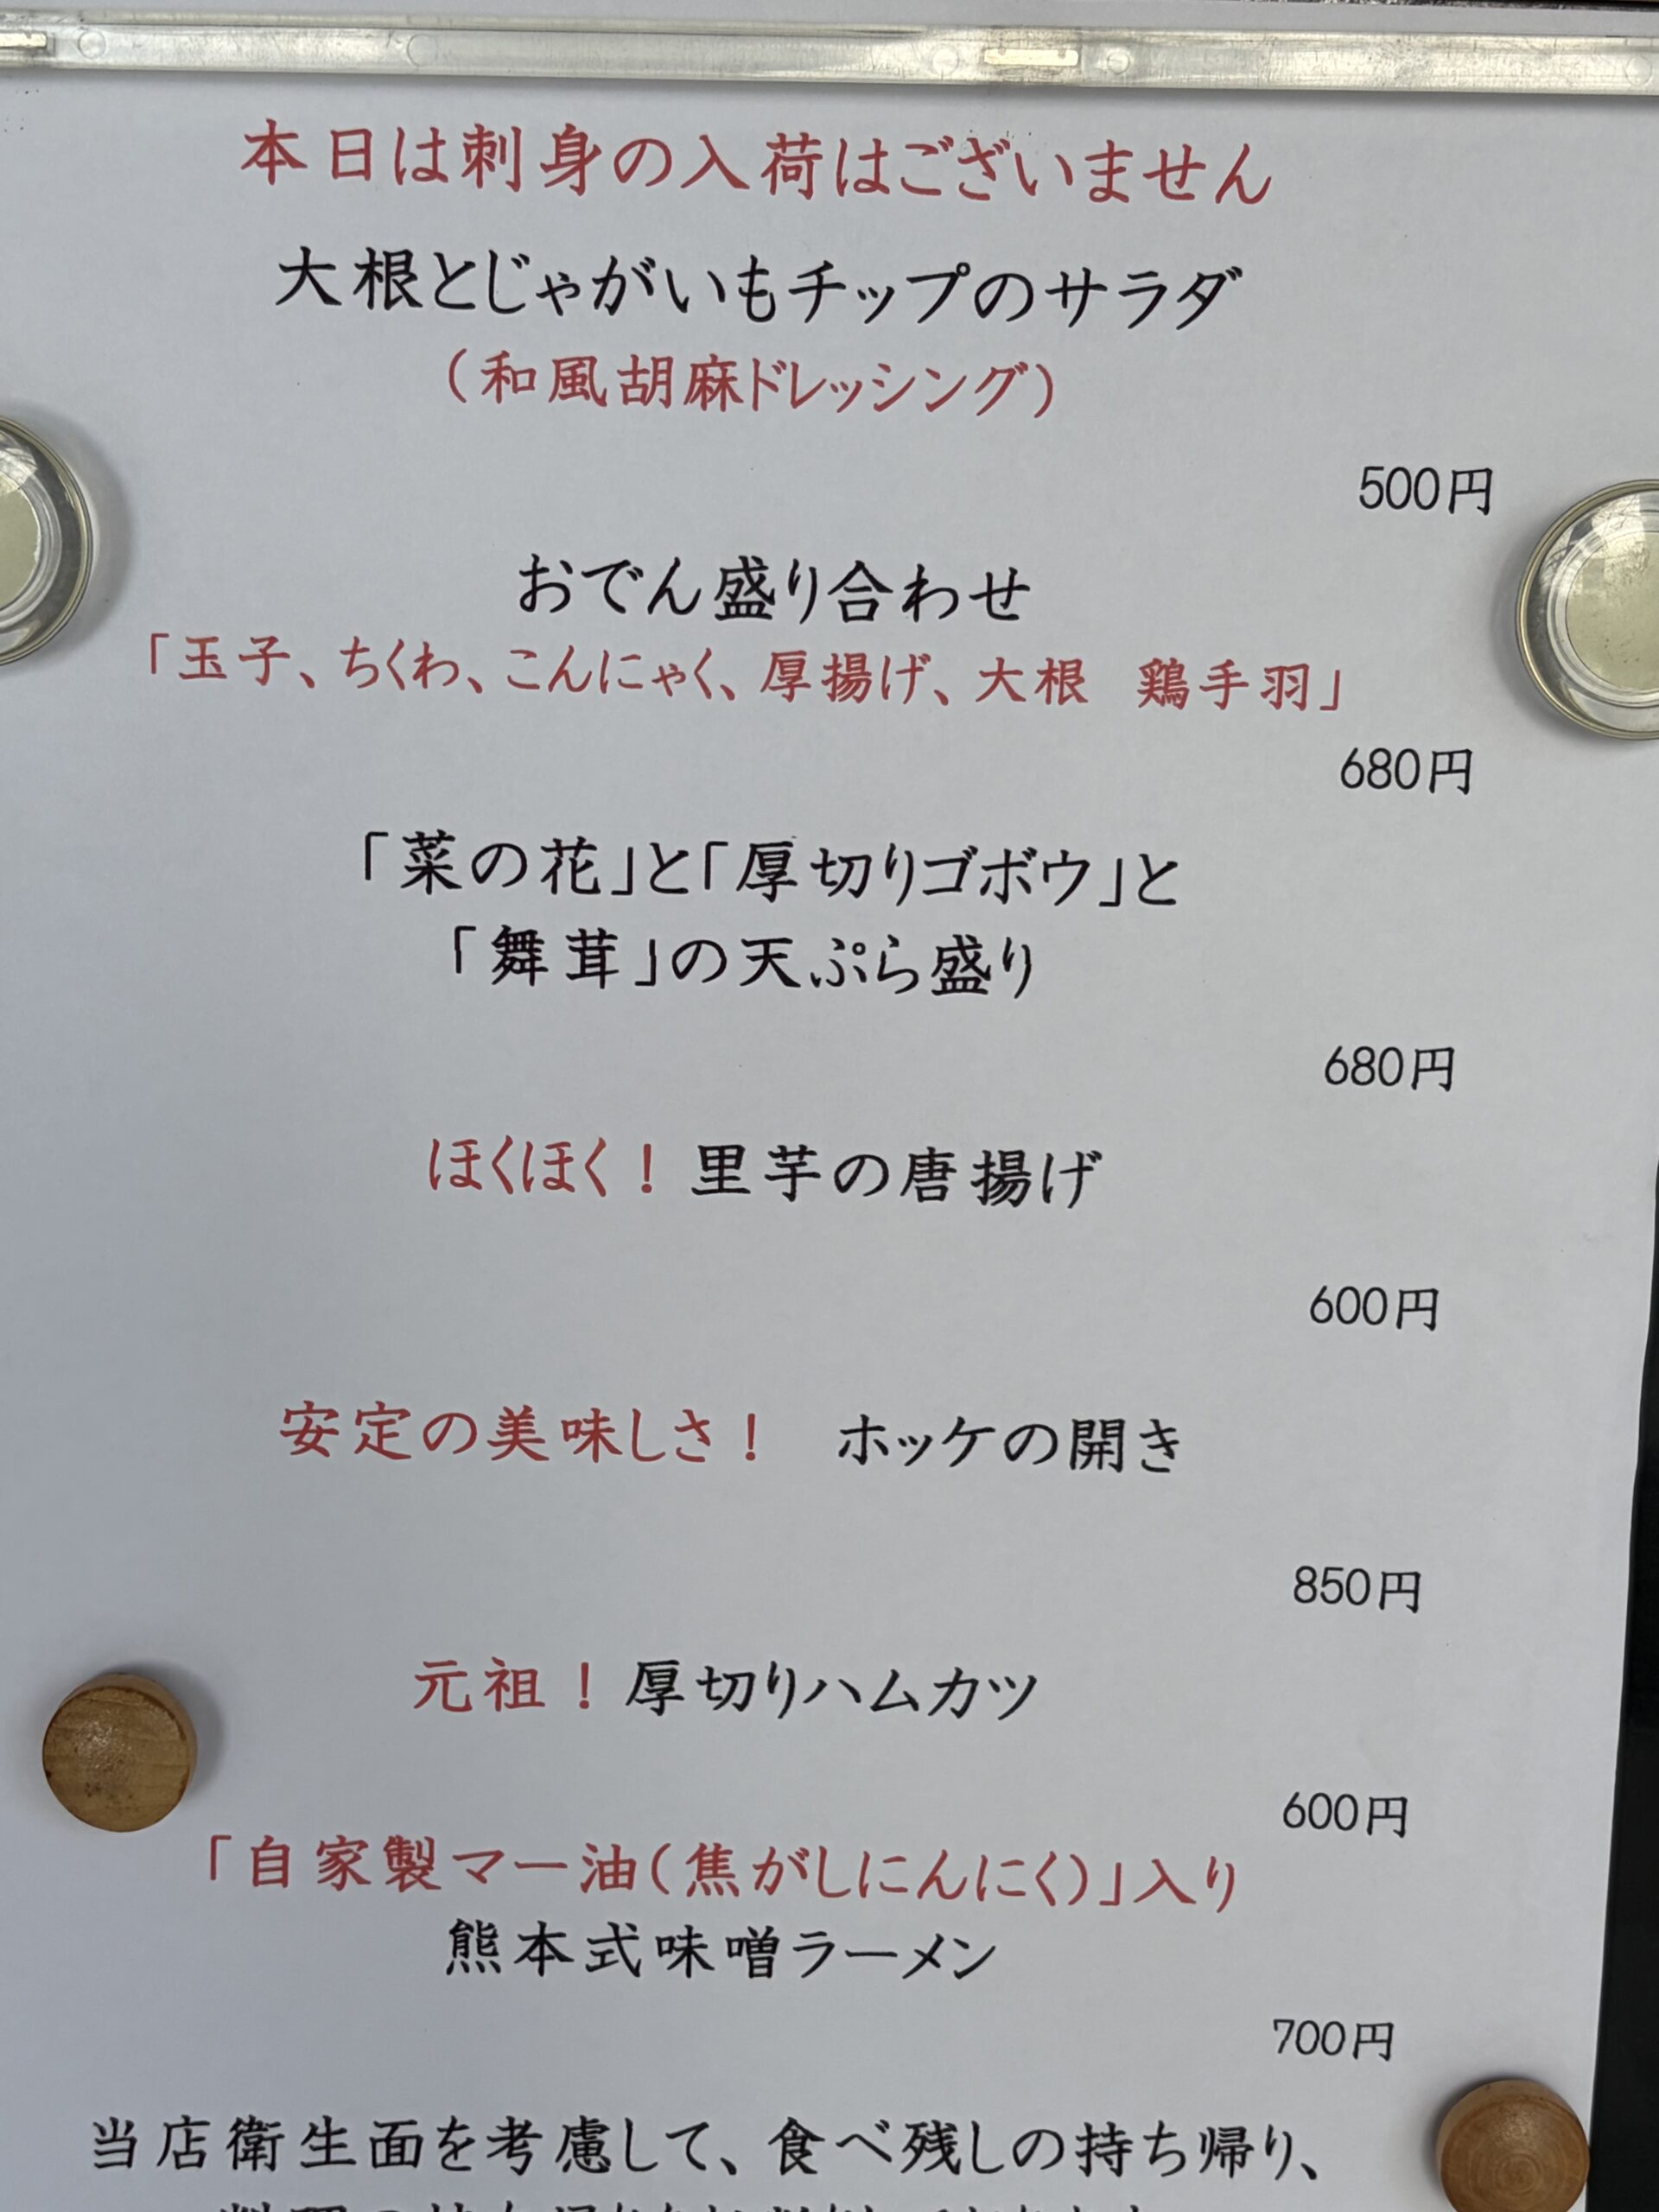 本日は刺身の入荷はございません
大根とじゃがいもチップのサラダ
（和風胡麻ドレッシング）
500円
おでん盛り合わせ
「玉子、ちくわ、こんにゃく、厚揚げ、大根　鶏手羽」
680円
「菜の花」と「厚切りゴボウ」と
「舞茸」の天ぷら盛り
680円
ほくほく！里芋の唐揚げ
600円
安定の美味しさ！　ホッケの開き
850円
元祖！厚切りハムカツ
600円
「自家製マー油（焦がしにんにく）」入り
熊本式味噌ラーメン
700円
当店衛生面を考慮して、食べ残しの持ち帰り、